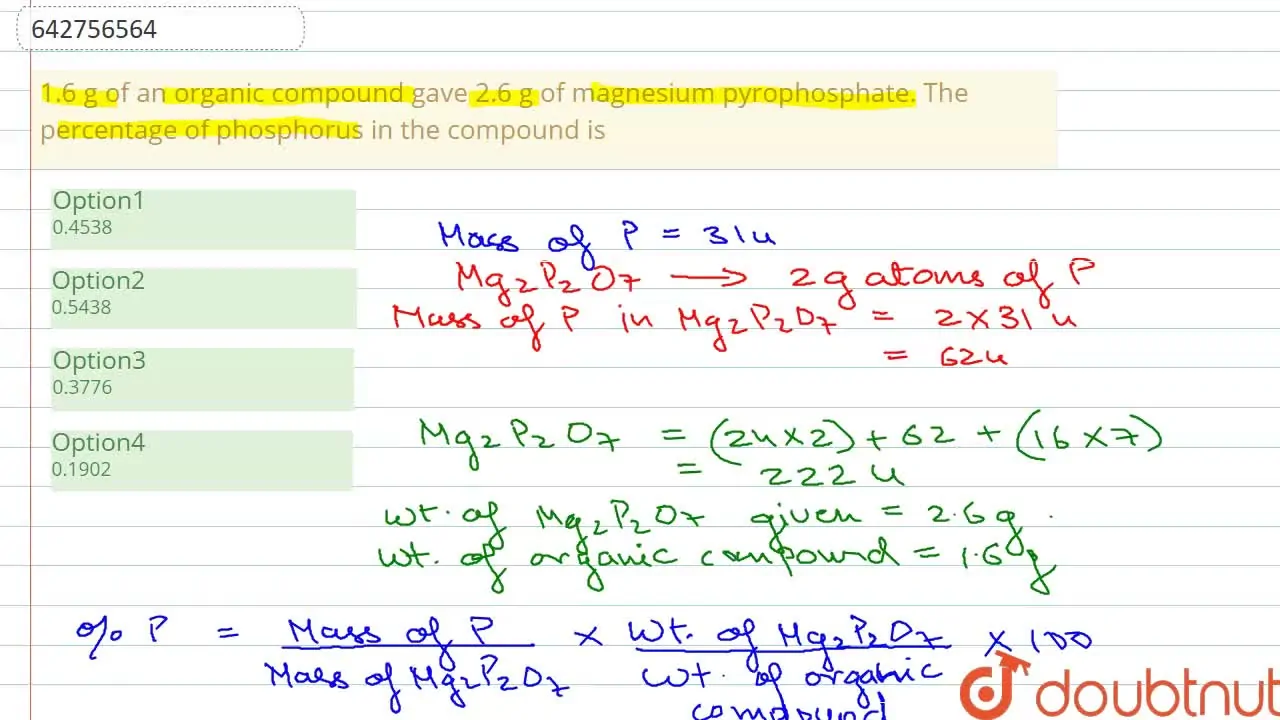 642756564
1.6 g of an organic compound gave 2.6 g of magnesium pyrophosphate. The
percentage of phosphorus in the compound is
Option1
0.4538
Option2
0.5438
Option3
0.3776
Option4
0.1902
Mass of P = 31u
Mg2P2O7 → 2g atoms of P
Mass of P in Mg2P2O7 = 2×31 u
= 62u
Mg2P2O7 = (24×2) + 62 + (16×7)
= 222 u
wt. of Mg2P2O7 given = 2.6g.
wt. of organic compound = 1.6g
% P = Mass of P / Mass of Mg2P2O7 × Wt. of Mg2P2O7 / Wt. of organic compound × 100
doubtnut